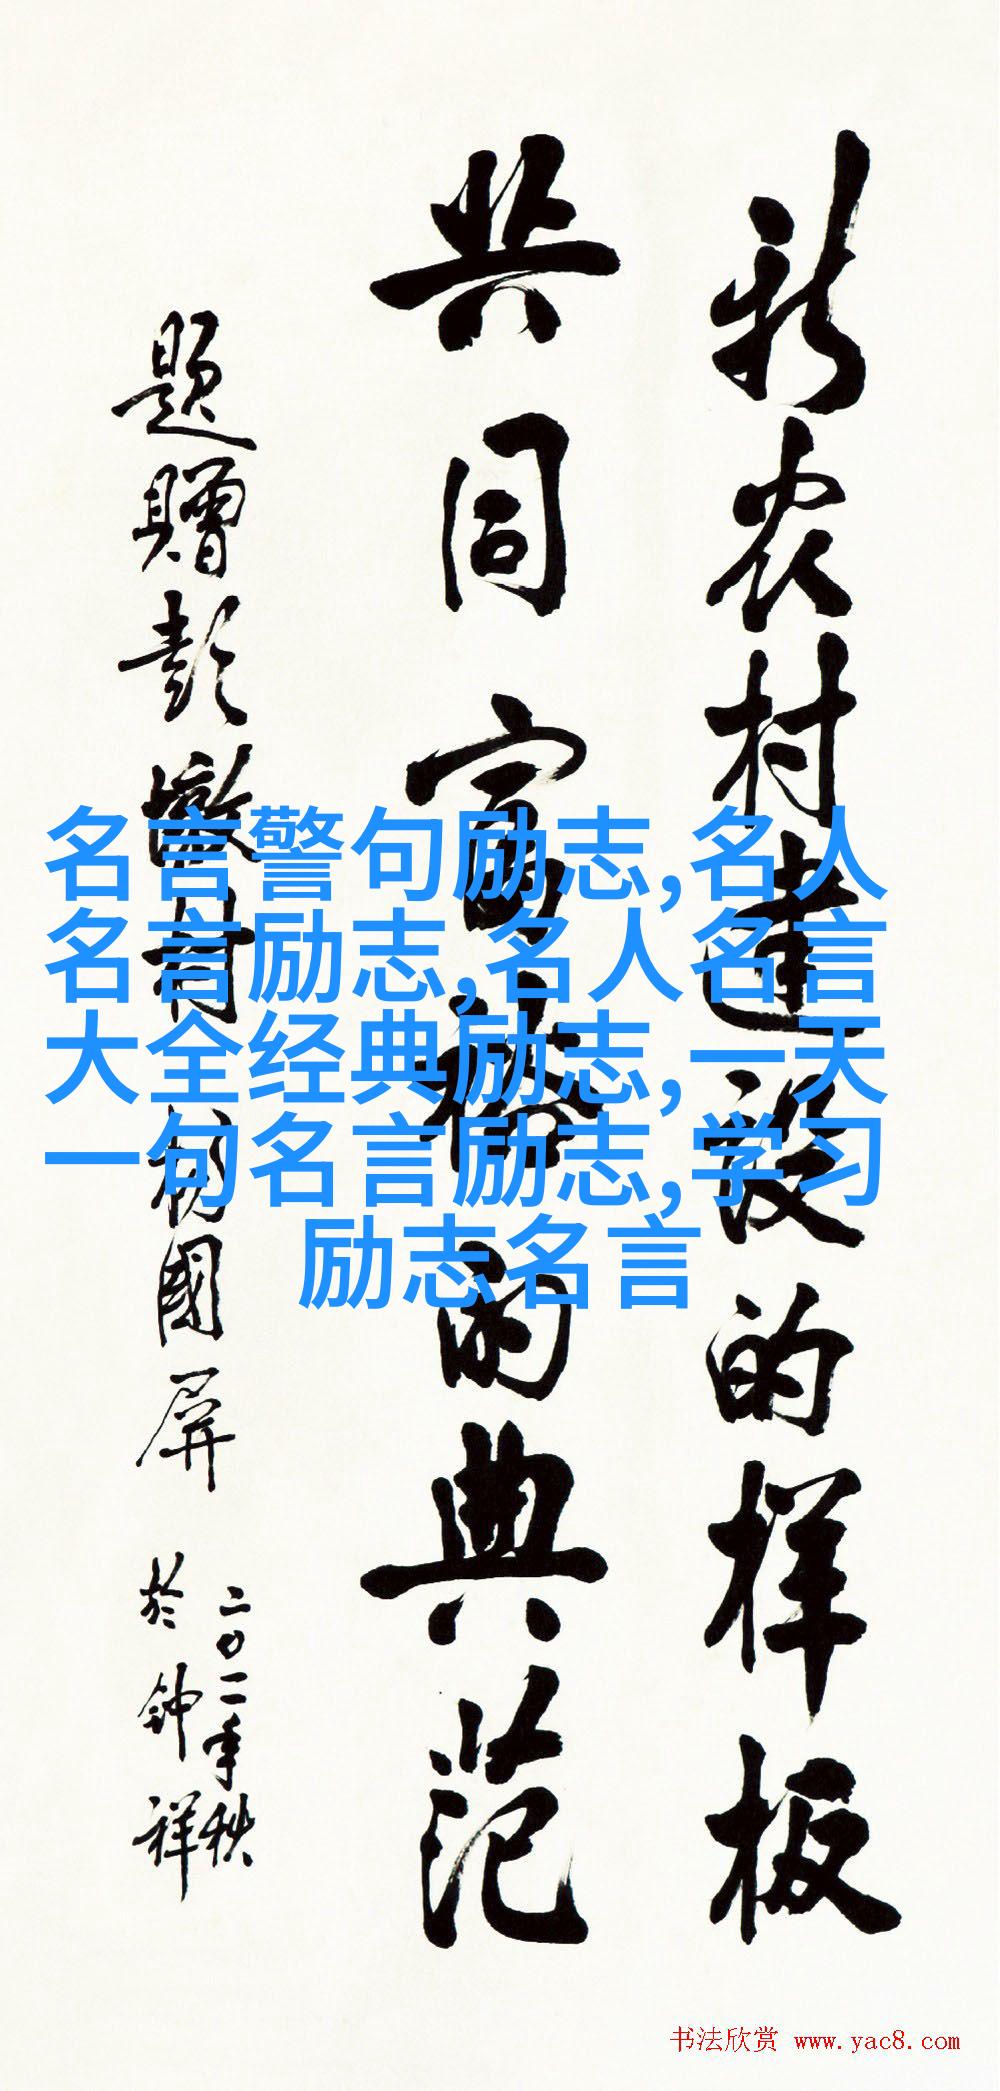 新农村建设的样板
共同富裕的典范
题赠彭墩村
国屏
二〇一一年秋
於钟祥
名言警句励志,名人
名言励志,名人名言
大全经典励志,一天
一句名言励志,学习
励志名言
书法欣赏 www.yac8.com